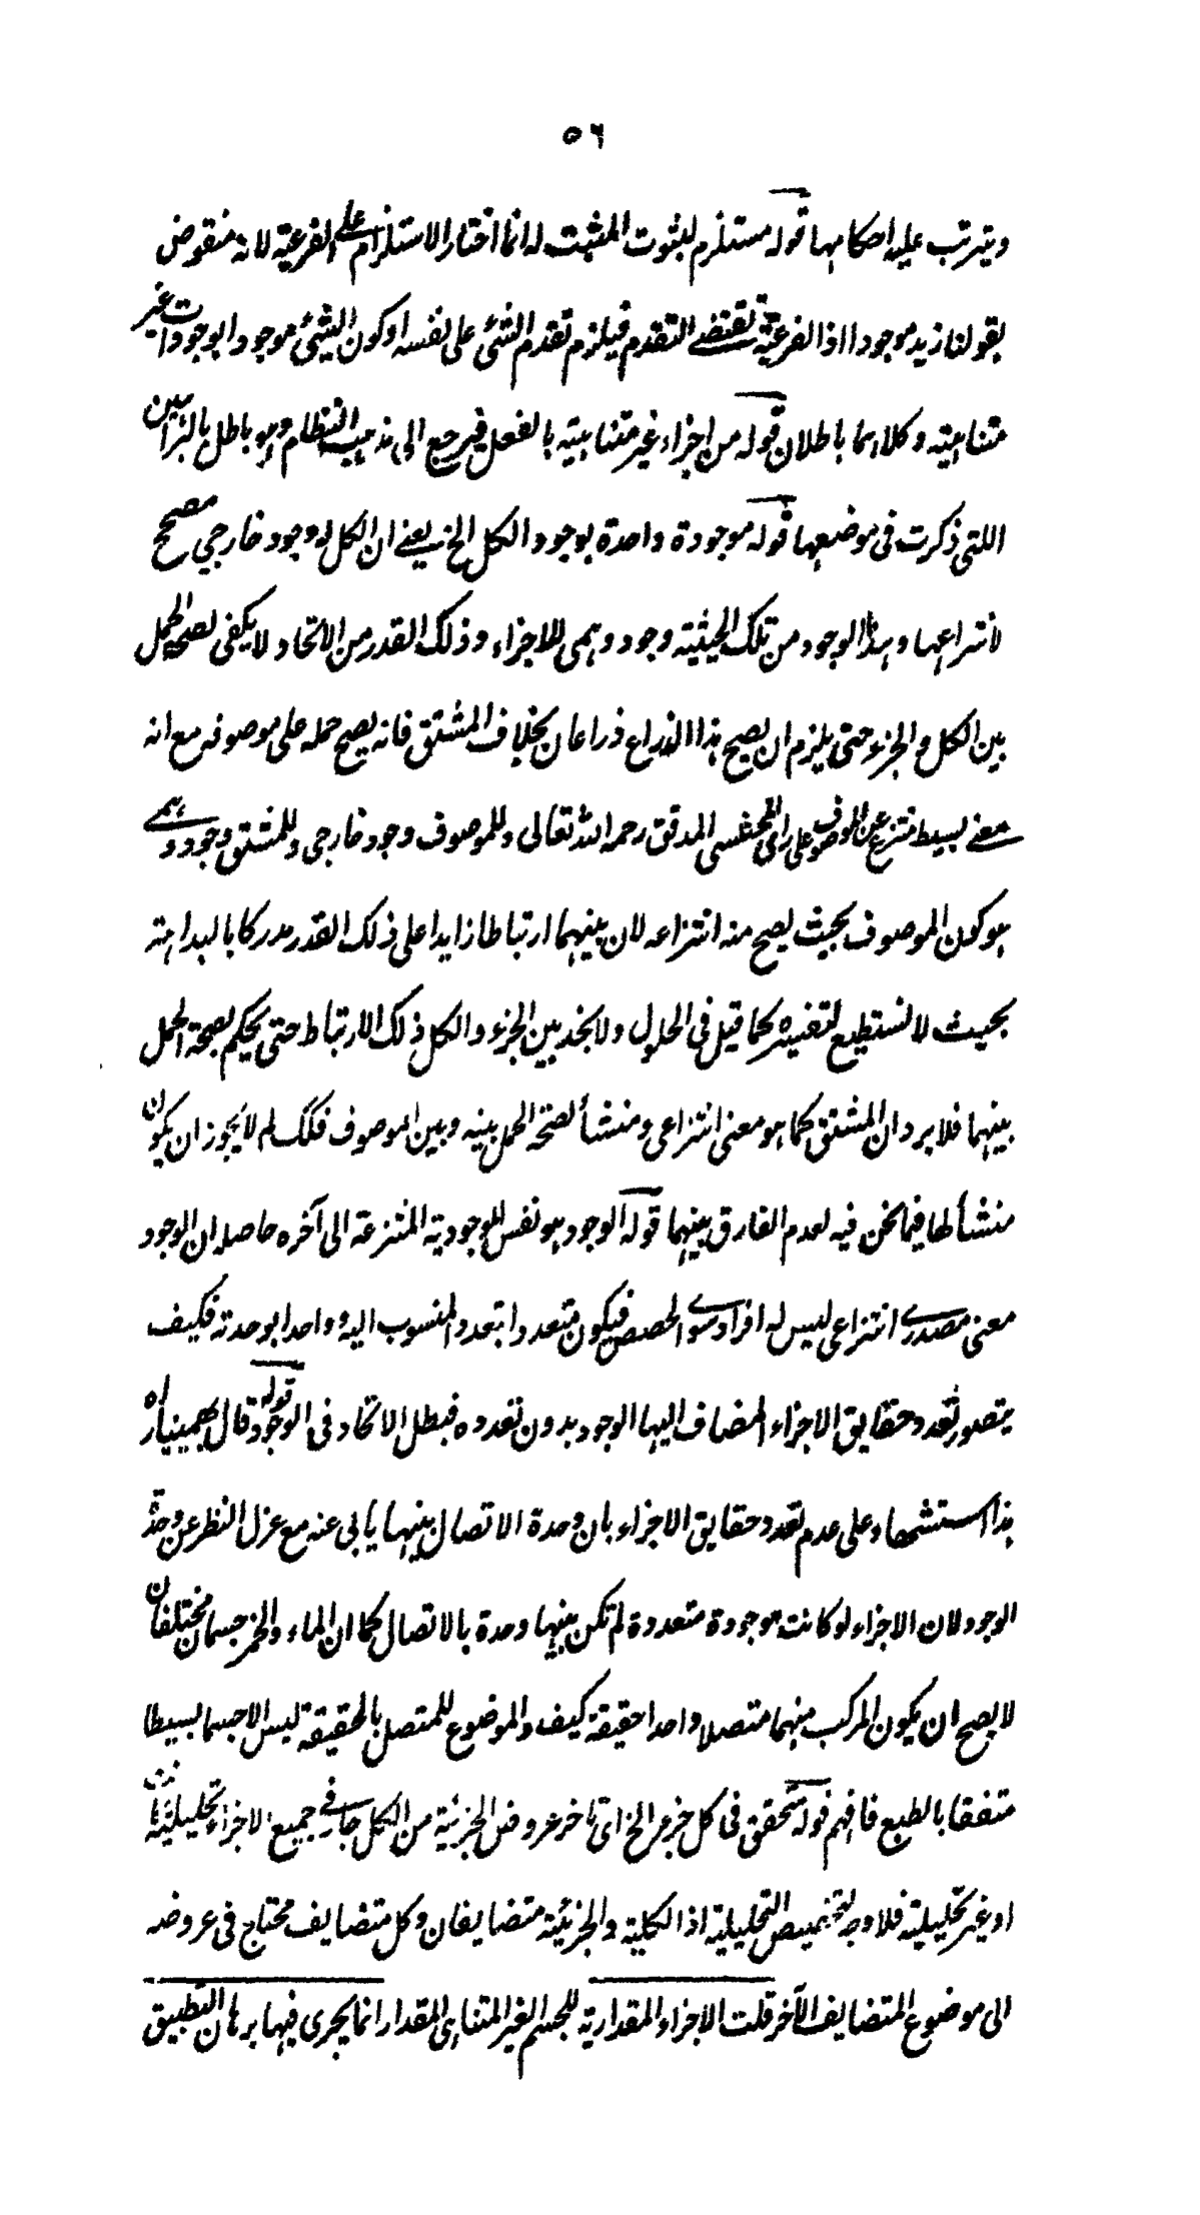 ٥٦
ويترتب عليه احكامها قوله مستلزم لثبوت المثبت له انما اختار الاستلزام على الفرعية لانه منقوض
بقولنا زيد موجود اذ الفرعية تقتضے التقدم فيلزم تقدم الشئ على نفسه او كون الشئ موجودا بوجودات غير
متناهية وكلاهما باطلان قوله من اجزاء غير متناهية بالفعل فيرجع الى مذهب النظام وهو باطل بالبراهين
اللتى ذكرت فى موضعها قوله موجودة واحدة بوجود الكل الخ يعنے ان الكل له وجود خارجي مصحح
لانتزاعها وهذا الوجود من تلك الحيثية وجود وهمى للاجزاء وذلك القدر من الاتحاد لا يكفى لصحة الحمل
بين الكل والجزء حتى يلزم ان يصح هذا الذراع ذراعان بخلاف المشتق فانه يصح حمله على موصوفه مع انه
معنے بسيط منتزع عن الموصوف على راى المحشى المدقق رحمه الله تعالى وللموصوف وجود خارجى وللمشتق وجود وهمے
هو كون الموصوف بحيث يصح منه انتزاعه لان بينهما ارتباطا زايدا على ذلك القدر مدركا بالبداهة
بحيث لا نستطيع لتفسيره كما قيل فى الحلول ولا نجد بين الجزء والكل ذلك الارتباط حتى يحكم بصحة الحمل
بينهما فلا يرد ان المشتق كما هو معنى انتزاعى ومنشأ لصحة الحمل بينه وبين الموصوف فكك لم لا يجوز ان يكون
منشأ لها فيما نحن فيه لعدم الفارق بينهما قوله الوجود هو نفس الموجودية المنتزعة الى آخره حاصله ان الوجود
معنى مصدرے انتزاعى ليس له افراد سوے الحصص فيكون متعددا بتعدد المنسوب اليه وواحدا بوحدته فكيف
يتصور تعدد حقايق الاجزاء المضاف اليها الوجود بدون تعدده فبطل الاتحاد فى الوجود قوله قال بهمينياراه
هذا استشهاد على عدم تعدد حقايق الاجزاء بان وحدة الاتصال بينها يابى عنه مع عزل النظر عن وحدة
الوجود لان الاجزاء لو كانت موجودة متعددة لم تكن بينها وحدة بالاتصال كما ان الماء والخمر جسمان مختلفان
لا يصح ان يكون المركب منهما متصلا واحدا حقيقة كيف والموضوع للمتصل بالحقيقة ليس الا جسما بسيطا
متفقا بالطبع فافهم قوله متحقق فى كل جزء الخ اى تاخر عروض الجزئية من الكل جار فے جميع الاجزاء تحليلية
او غير تحليلية فلا وجه لتخصيص التحليلية اذ الكلية والجزئية متضايفان وكل متضايف محتاج فى عروضه
الى موضوع المتضايف الآخر قلت الاجزاء المقدارية للجسم الغير المتناهى المقدار انما يجرى فيها برهان التطبيق